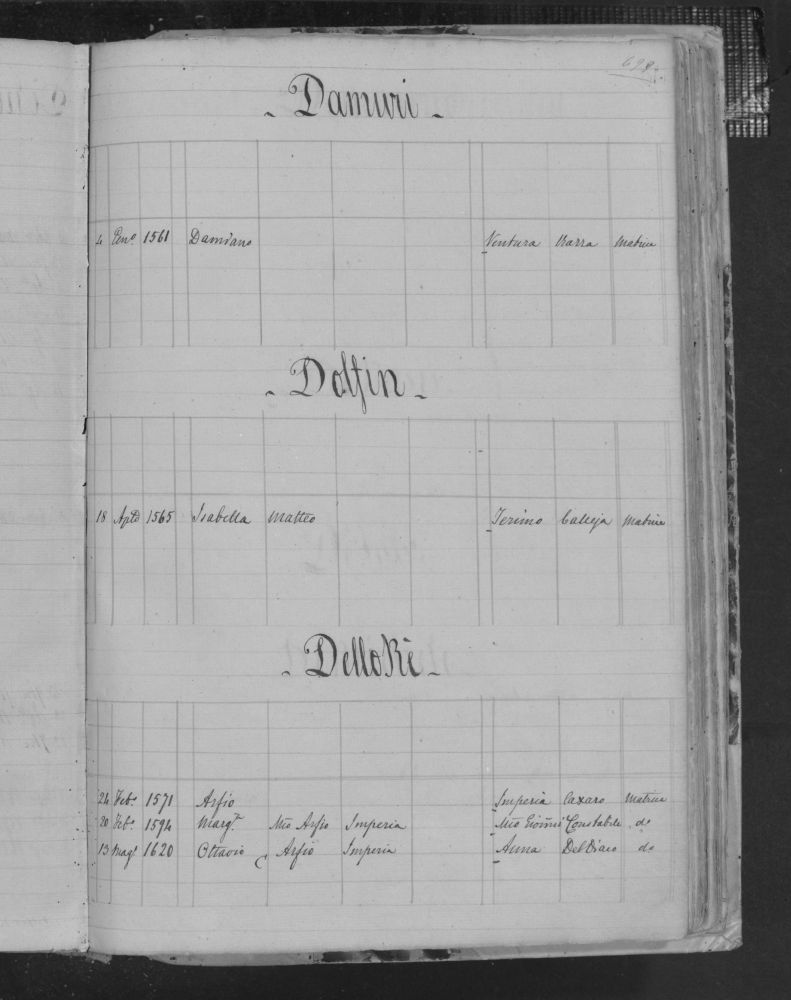 - Damuri -
4 Gen.º 1561 Damiano Ventura Xarra Matrice
- Dolfin -
18 Aple 1565 Isabella Matteo Jerimo Calleja Matrice
- DelloRè -
24 Feb.º 1571 Arfio Imperia Caxaro Matrice
20 Feb.º 1594 Marg.ª Mro Arfio Imperia Mro Gioñi Constabile do
13 Magº 1620 Ottavio Arfio Imperia Anna DelDiaco do